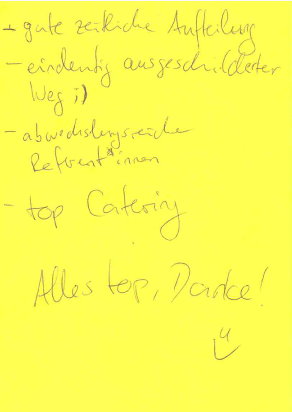 - gute zeitliche Aufteilung
- eindeutig ausgeschilderter
Weg ;)
- abwechslungsreiche
Referent*innen
- top Catering
Alles top, Danke!